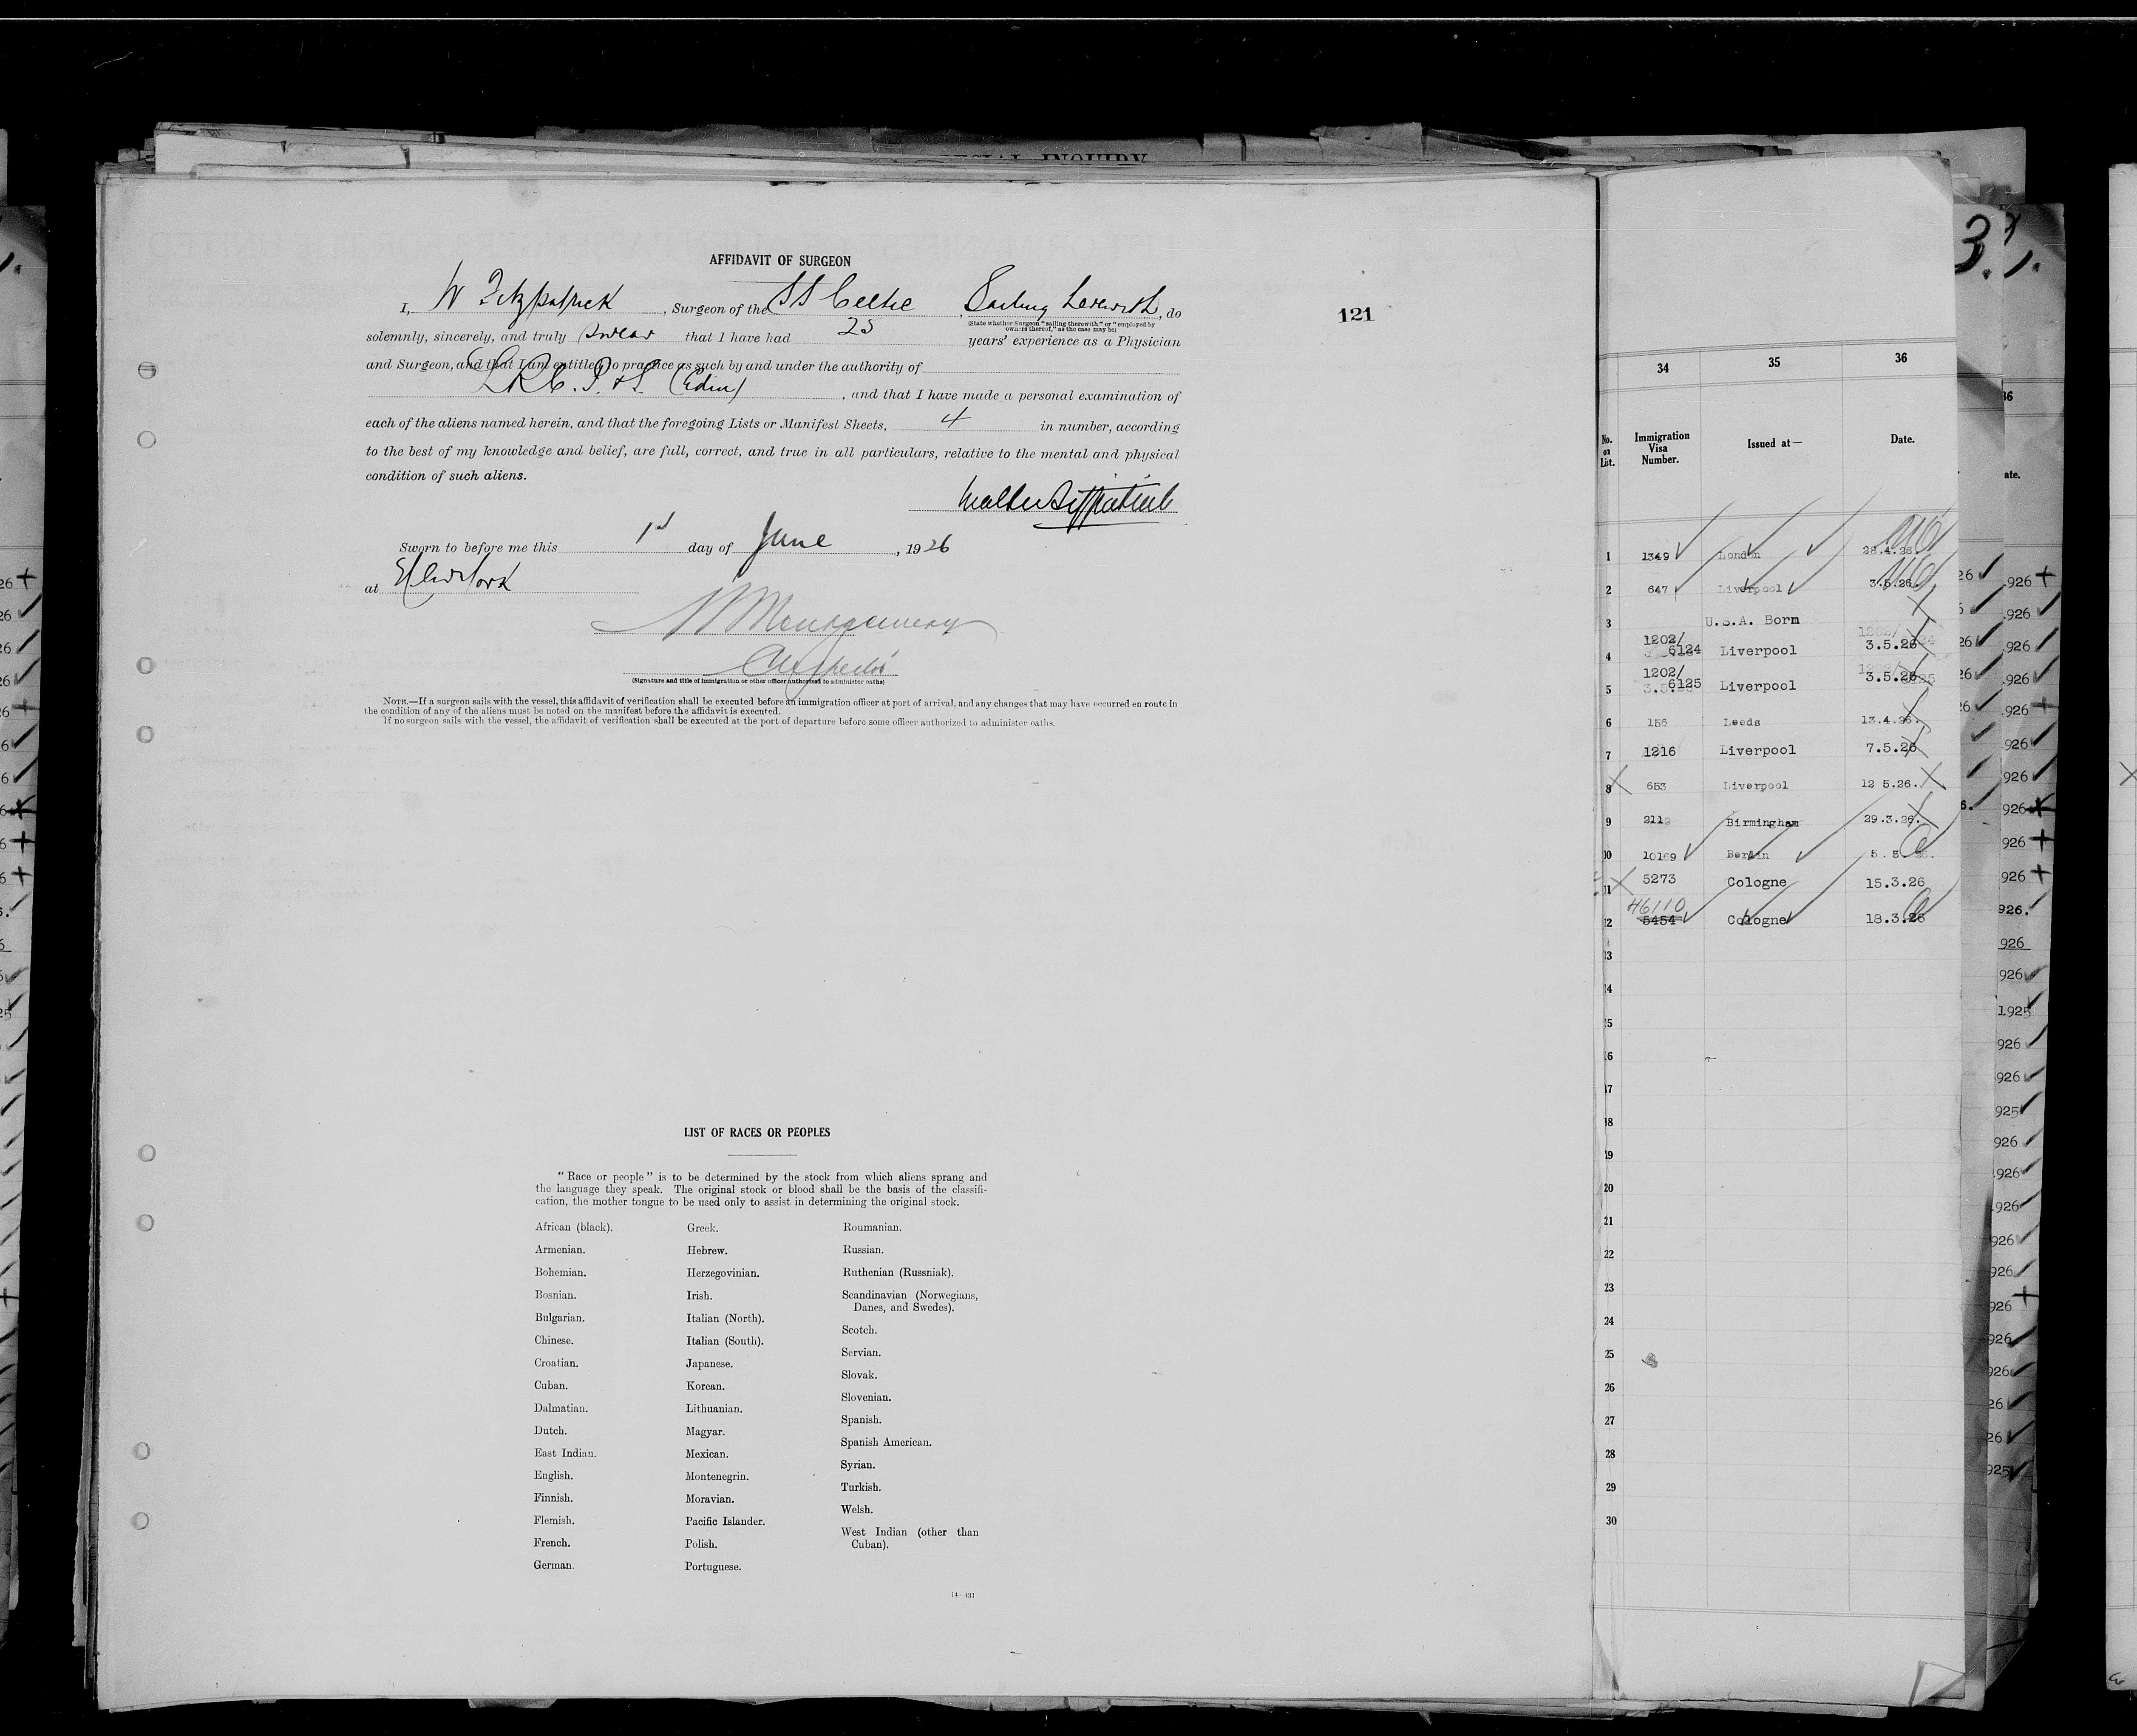 SPECIAL INQUIRY
AFFIDAVIT OF SURGEON
I, W Fitzpatrick, Surgeon of the SS Celtic, Sailing therewith, do
(State whether Surgeon "sailing therewith" or "employed by
owners thereof," as the case may be)
solemnly, sincerely, and truly swear that I have had 25 years' experience as a Physician
and Surgeon, and that I am entitled to practice as such by and under the authority of
L.R.C.P. & S. (Edin), and that I have made a personal examination of
each of the aliens named herein, and that the foregoing Lists or Manifest Sheets, 4 in number, according
to the best of my knowledge and belief, are full, correct, and true in all particulars, relative to the mental and physical
condition of such aliens.
Walter Fitzpatrick
Sworn to before me this 1st day of June, 1926
at New York
Montgomery
Inspector
(Signature and title of immigration or other officer authorized to administer oaths)
NOTE.—If a surgeon sails with the vessel, this affidavit of verification shall be executed before an immigration officer at port of arrival, and any changes that may have occurred en route in
the condition of any of the aliens must be noted on the manifest before the affidavit is executed.
If no surgeon sails with the vessel, the affidavit of verification shall be executed at the port of departure before some officer authorized to administer oaths.
121
LIST OF RACES OR PEOPLES
"Race or people" is to be determined by the stock from which aliens sprang and
the language they speak. The original stock or blood shall be the basis of the classifi-
cation, the mother tongue to be used only to assist in determining the original stock.
African (black).
Armenian.
Bohemian.
Bosnian.
Bulgarian.
Chinese.
Croatian.
Cuban.
Dalmatian.
Dutch.
East Indian.
English.
Finnish.
Flemish.
French.
German.
Greek.
Hebrew.
Herzegovinian.
Irish.
Italian (North).
Italian (South).
Japanese.
Korean.
Lithuanian.
Magyar.
Mexican.
Montenegrin.
Moravian.
Pacific Islander.
Polish.
Portuguese.
Roumanian.
Russian.
Ruthenian (Russniak).
Scandinavian (Norwegians,
Danes, and Swedes).
Scotch.
Servian.
Slovak.
Slovenian.
Spanish.
Spanish American.
Syrian.
Turkish.
Welsh.
West Indian (other than
Cuban).
14—431
34 35 36
No. on List. Immigration Visa Number. Issued at— Date.
1 1349 London 28.4.26.
2 647 Liverpool 3.5.26.
3 U.S.A. Born
4 1202/6124 Liverpool 3.5.26
5 1202/6125 Liverpool 3.5.26
6 156 Leeds 13.4.26.
7 1216 Liverpool 7.5.26
8 653 Liverpool 12 5.26.
9 2119 Birmingham 29.3.26.
10 10169 Berlin 5.3.26.
11 5273 Cologne 15.3.26
46110
12 5454 Cologne 18.3.26
13
14
15
16
17
18
19
20
21
22
23
24
25
26
27
28
29
30